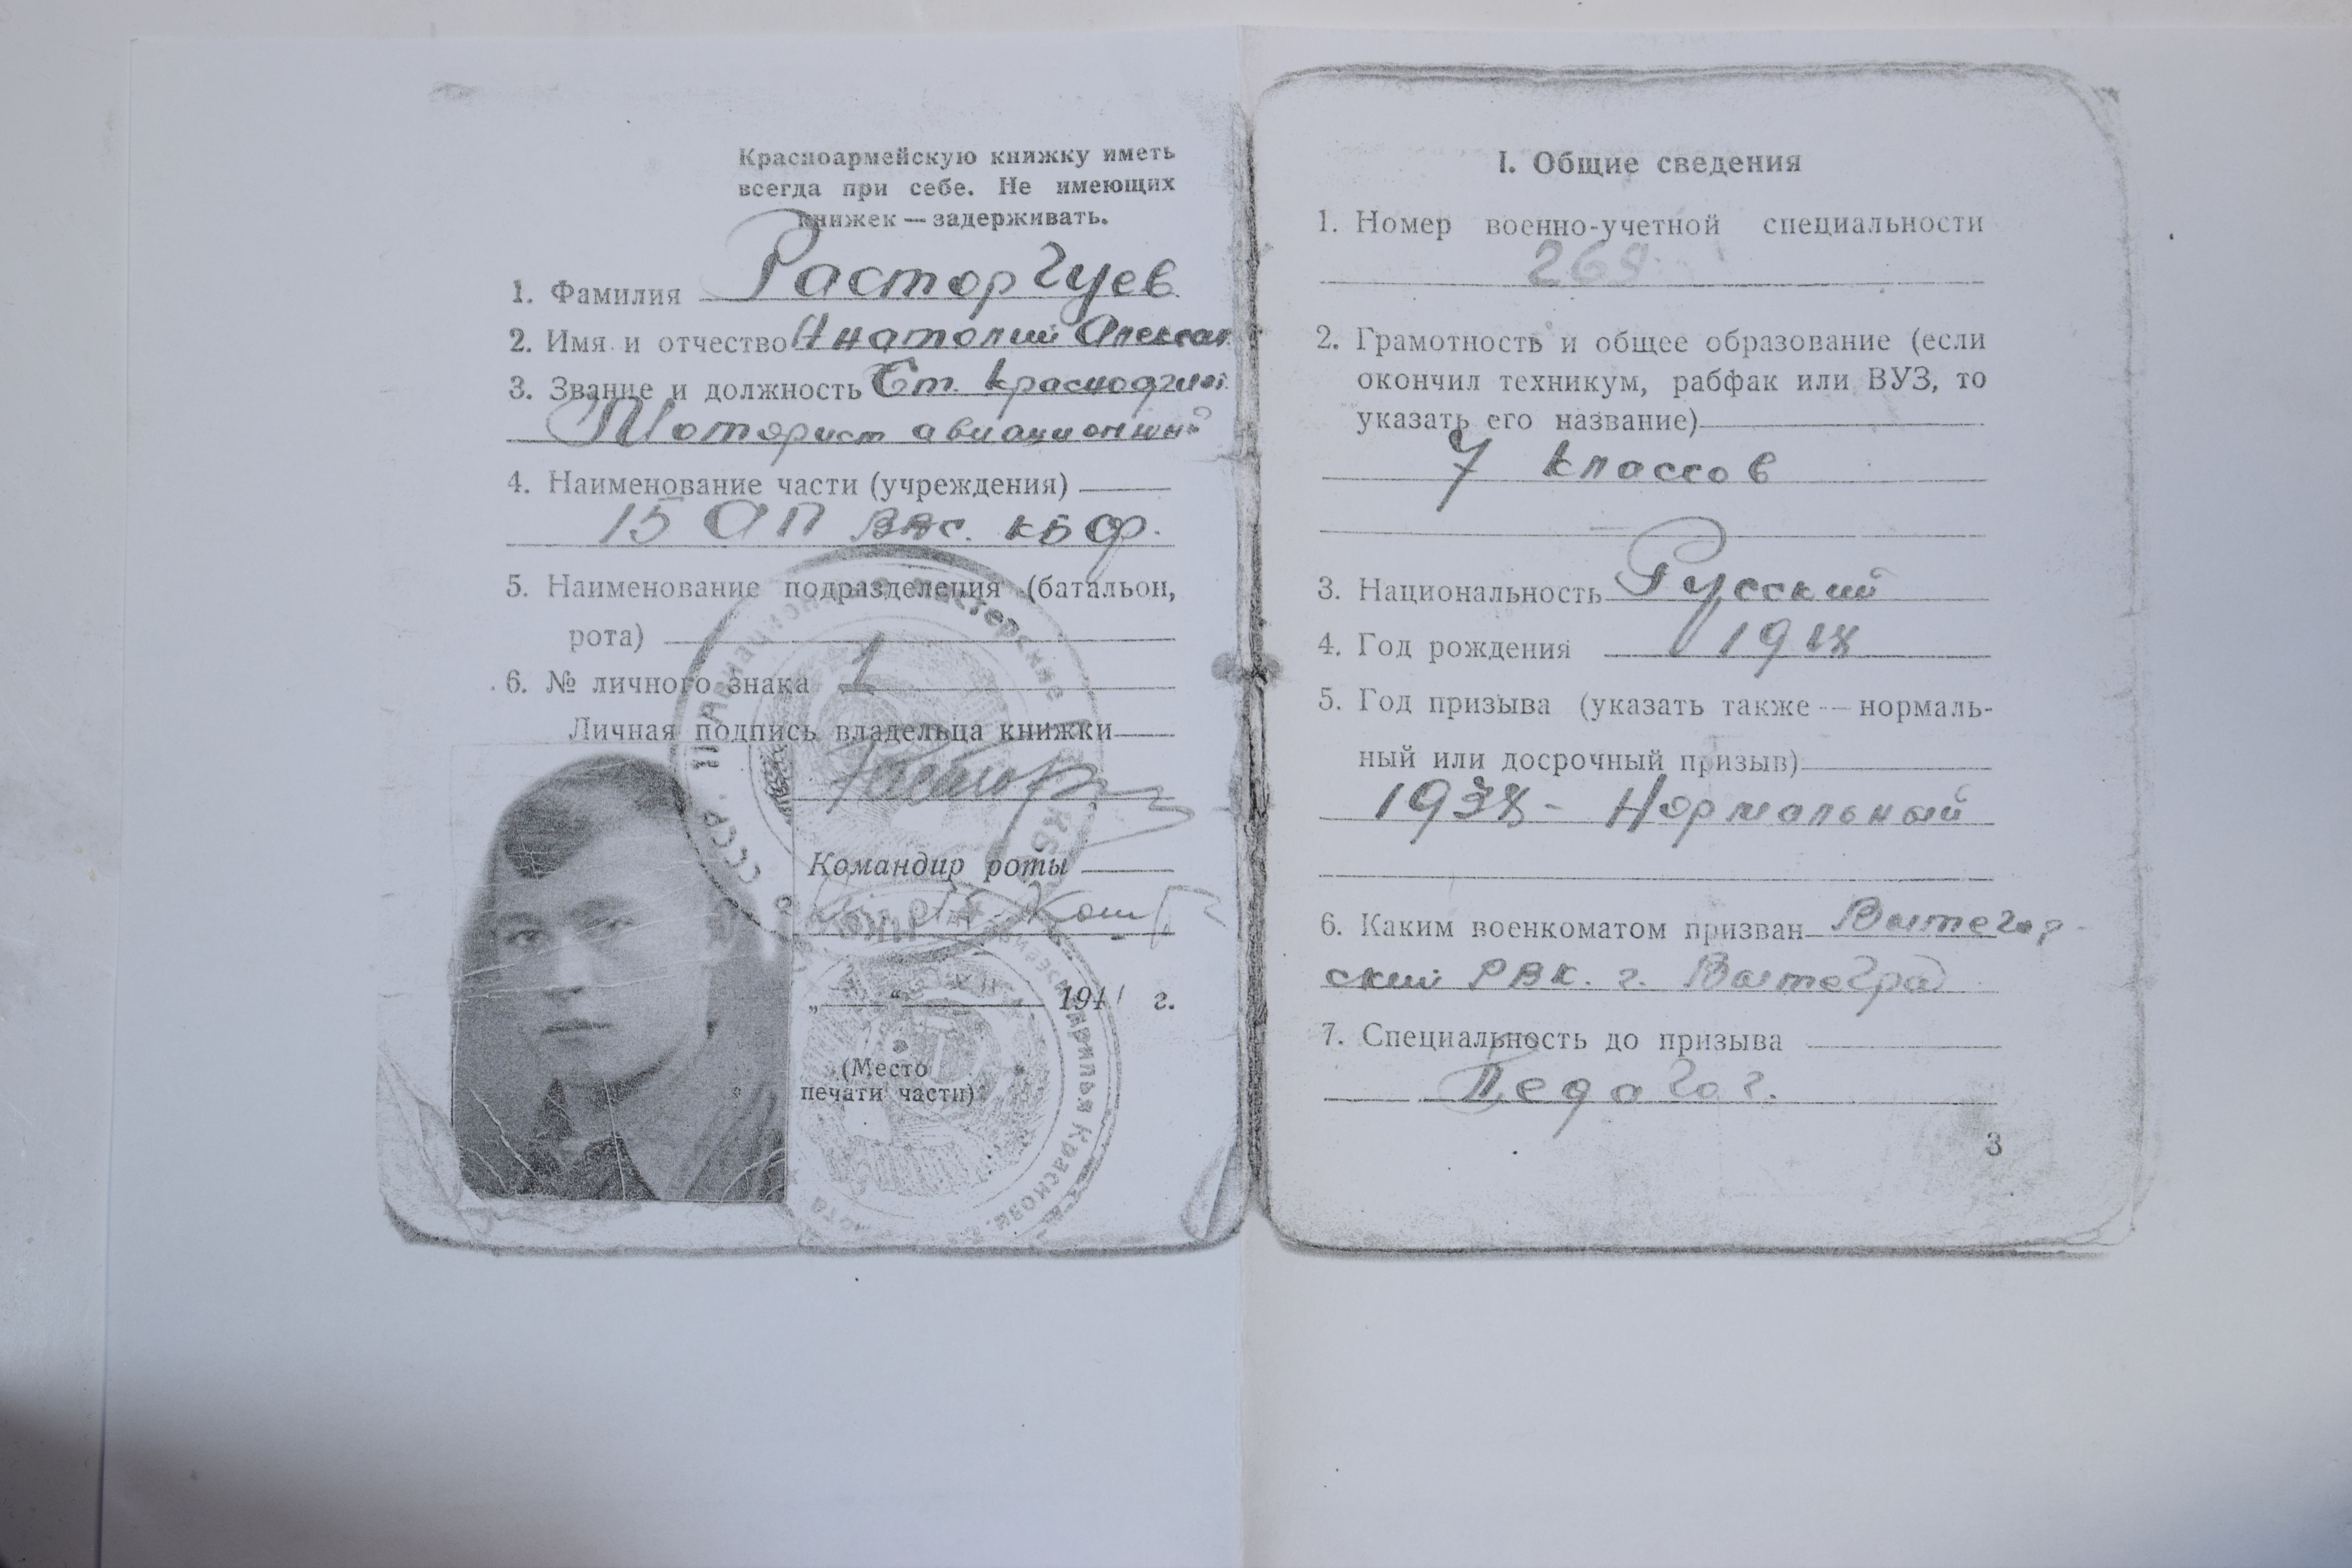 Красноармейскую книжку иметь
всегда при себе. Не имеющих
книжек — задерживать.
1. Фамилия Расторгуев
2. Имя и отчество Анатолий Алексан
3. Звание и должность Ст. краснофлот.
Моторист авиационный
4. Наименование части (учреждения)
15 АП ВВС. КБФ.
5. Наименование подразделения (батальон,
рота)
6. № личного знака 1
Личная подпись владельца книжки
Командир роты
„ “ 1941 г.
(Место
печати части)
I. Общие сведения
1. Номер военно-учетной специальности
2. Грамотность и общее образование (если
окончил техникум, рабфак или ВУЗ, то
указать его название)
7 классов
3. Национальность Русский
4. Год рождения 1918
5. Год призыва (указать также — нормаль-
ный или досрочный призыв)
1938 - Нормальный
6. Каким военкоматом призван Вытегор-
ский РВК. г. Вытеград
7. Специальность до призыва
Педагог.
3